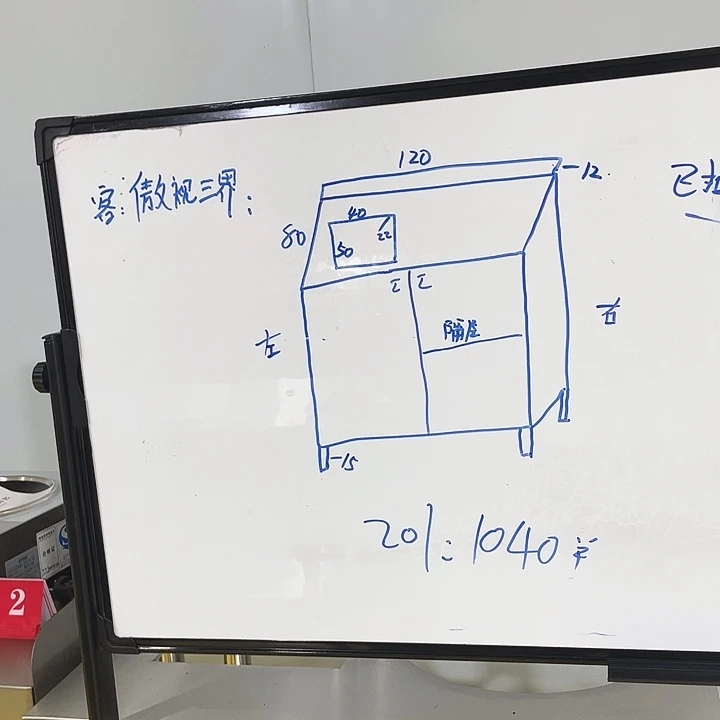 客:傲视三界:
120
-12
80
40
50
22
左
右
隔层
-15
201: 1040 ¥
已
2